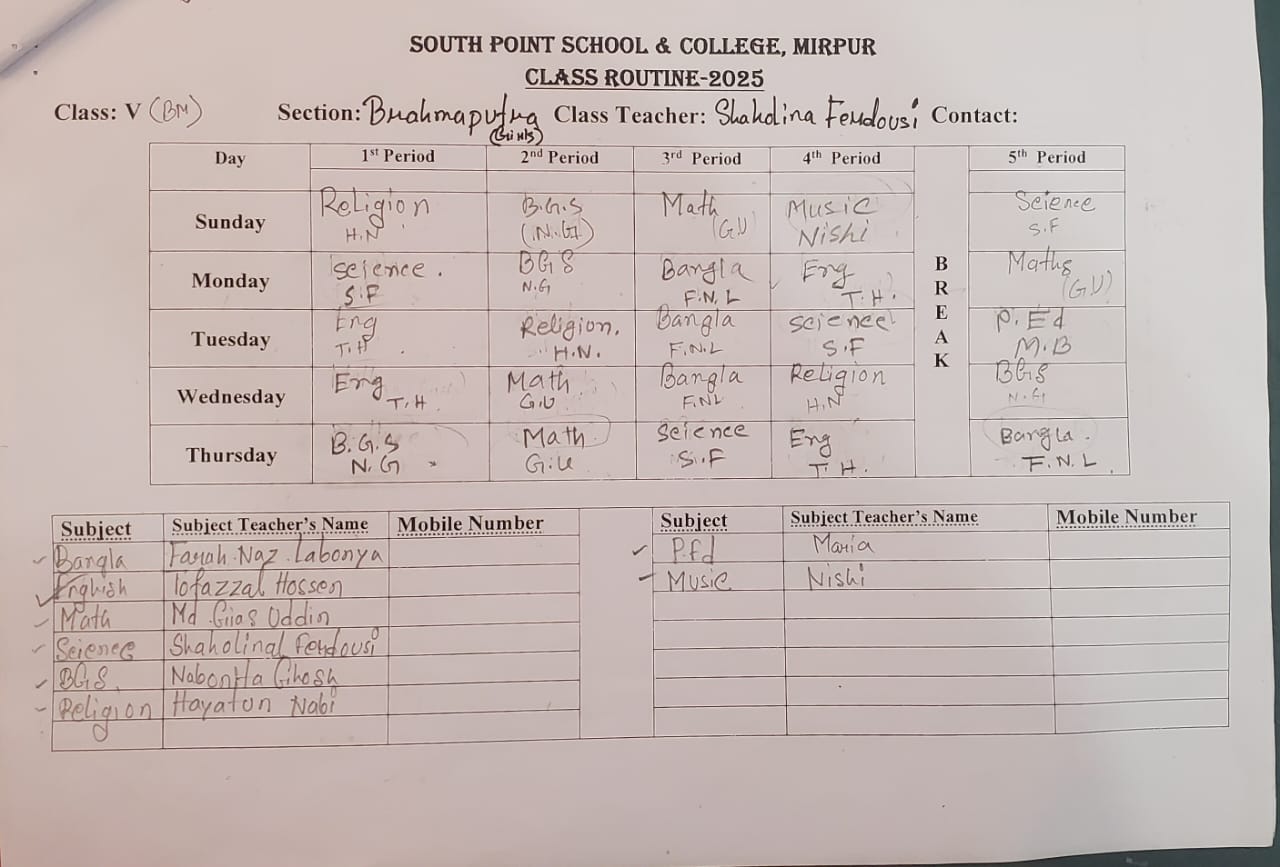 SOUTH POINT SCHOOL & COLLEGE, MIRPUR
CLASS ROUTINE-2025
Class: V (BM) Section: Brahmaputra (Girls) Class Teacher: Shaholina Ferdousi Contact:
Day 1st Period 2nd Period 3rd Period 4th Period BREAK 5th Period
Sunday Religion B.G.S Math Music Science
H.N (N.G) (GU) Nishi S.F
Monday Science. BGS Bangla Eng Maths
S.F N.G F.N.L T.H. (GU)
Tuesday Eng Religion. Bangla Science P.Ed
T.H H.N. F.N.L S.F M.B
Wednesday Eng Math Bangla Religion BGS
T.H G.U F.NL H.N N.G
Thursday B.G.S Math Science Eng Bangla.
N.G G.U S.F T.H. F.N.L
Subject Subject Teacher's Name Mobile Number Subject Subject Teacher's Name Mobile Number
Bangla Farah Naz Labonya P.Ed Maria
English Tofazzal Hossen Music Nishi
Math Md Gias Uddin
Science Shaholinal Ferdousi
BGS Nabonita Ghosh
Religion Hayatun Nabi